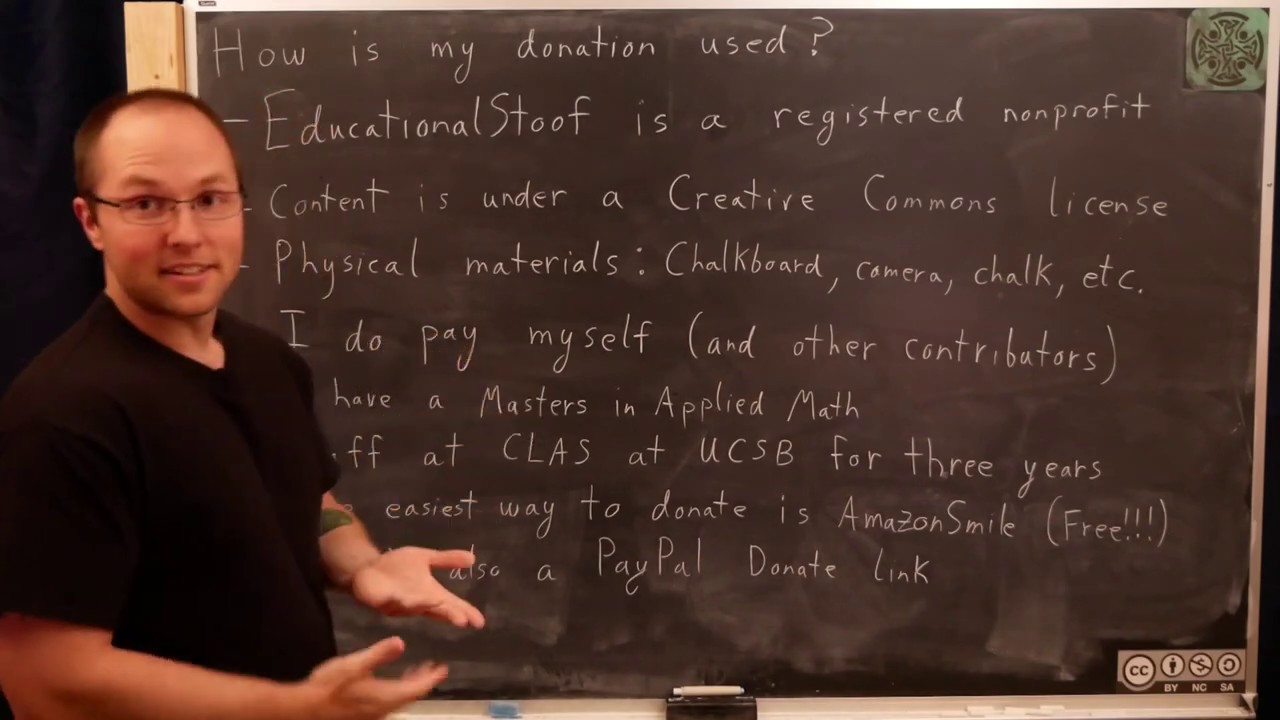 How is my donation used?
- EducationalStoof is a registered nonprofit
- Content is under a Creative Commons license
- Physical materials: Chalkboard, camera, chalk, etc.
I do pay myself (and other contributors)
have a Masters in Applied Math
ff at CLAS at UCSB for three years
easiest way to donate is AmazonSmile (Free!!!)
also a PayPal Donate link
cc BY NC SA